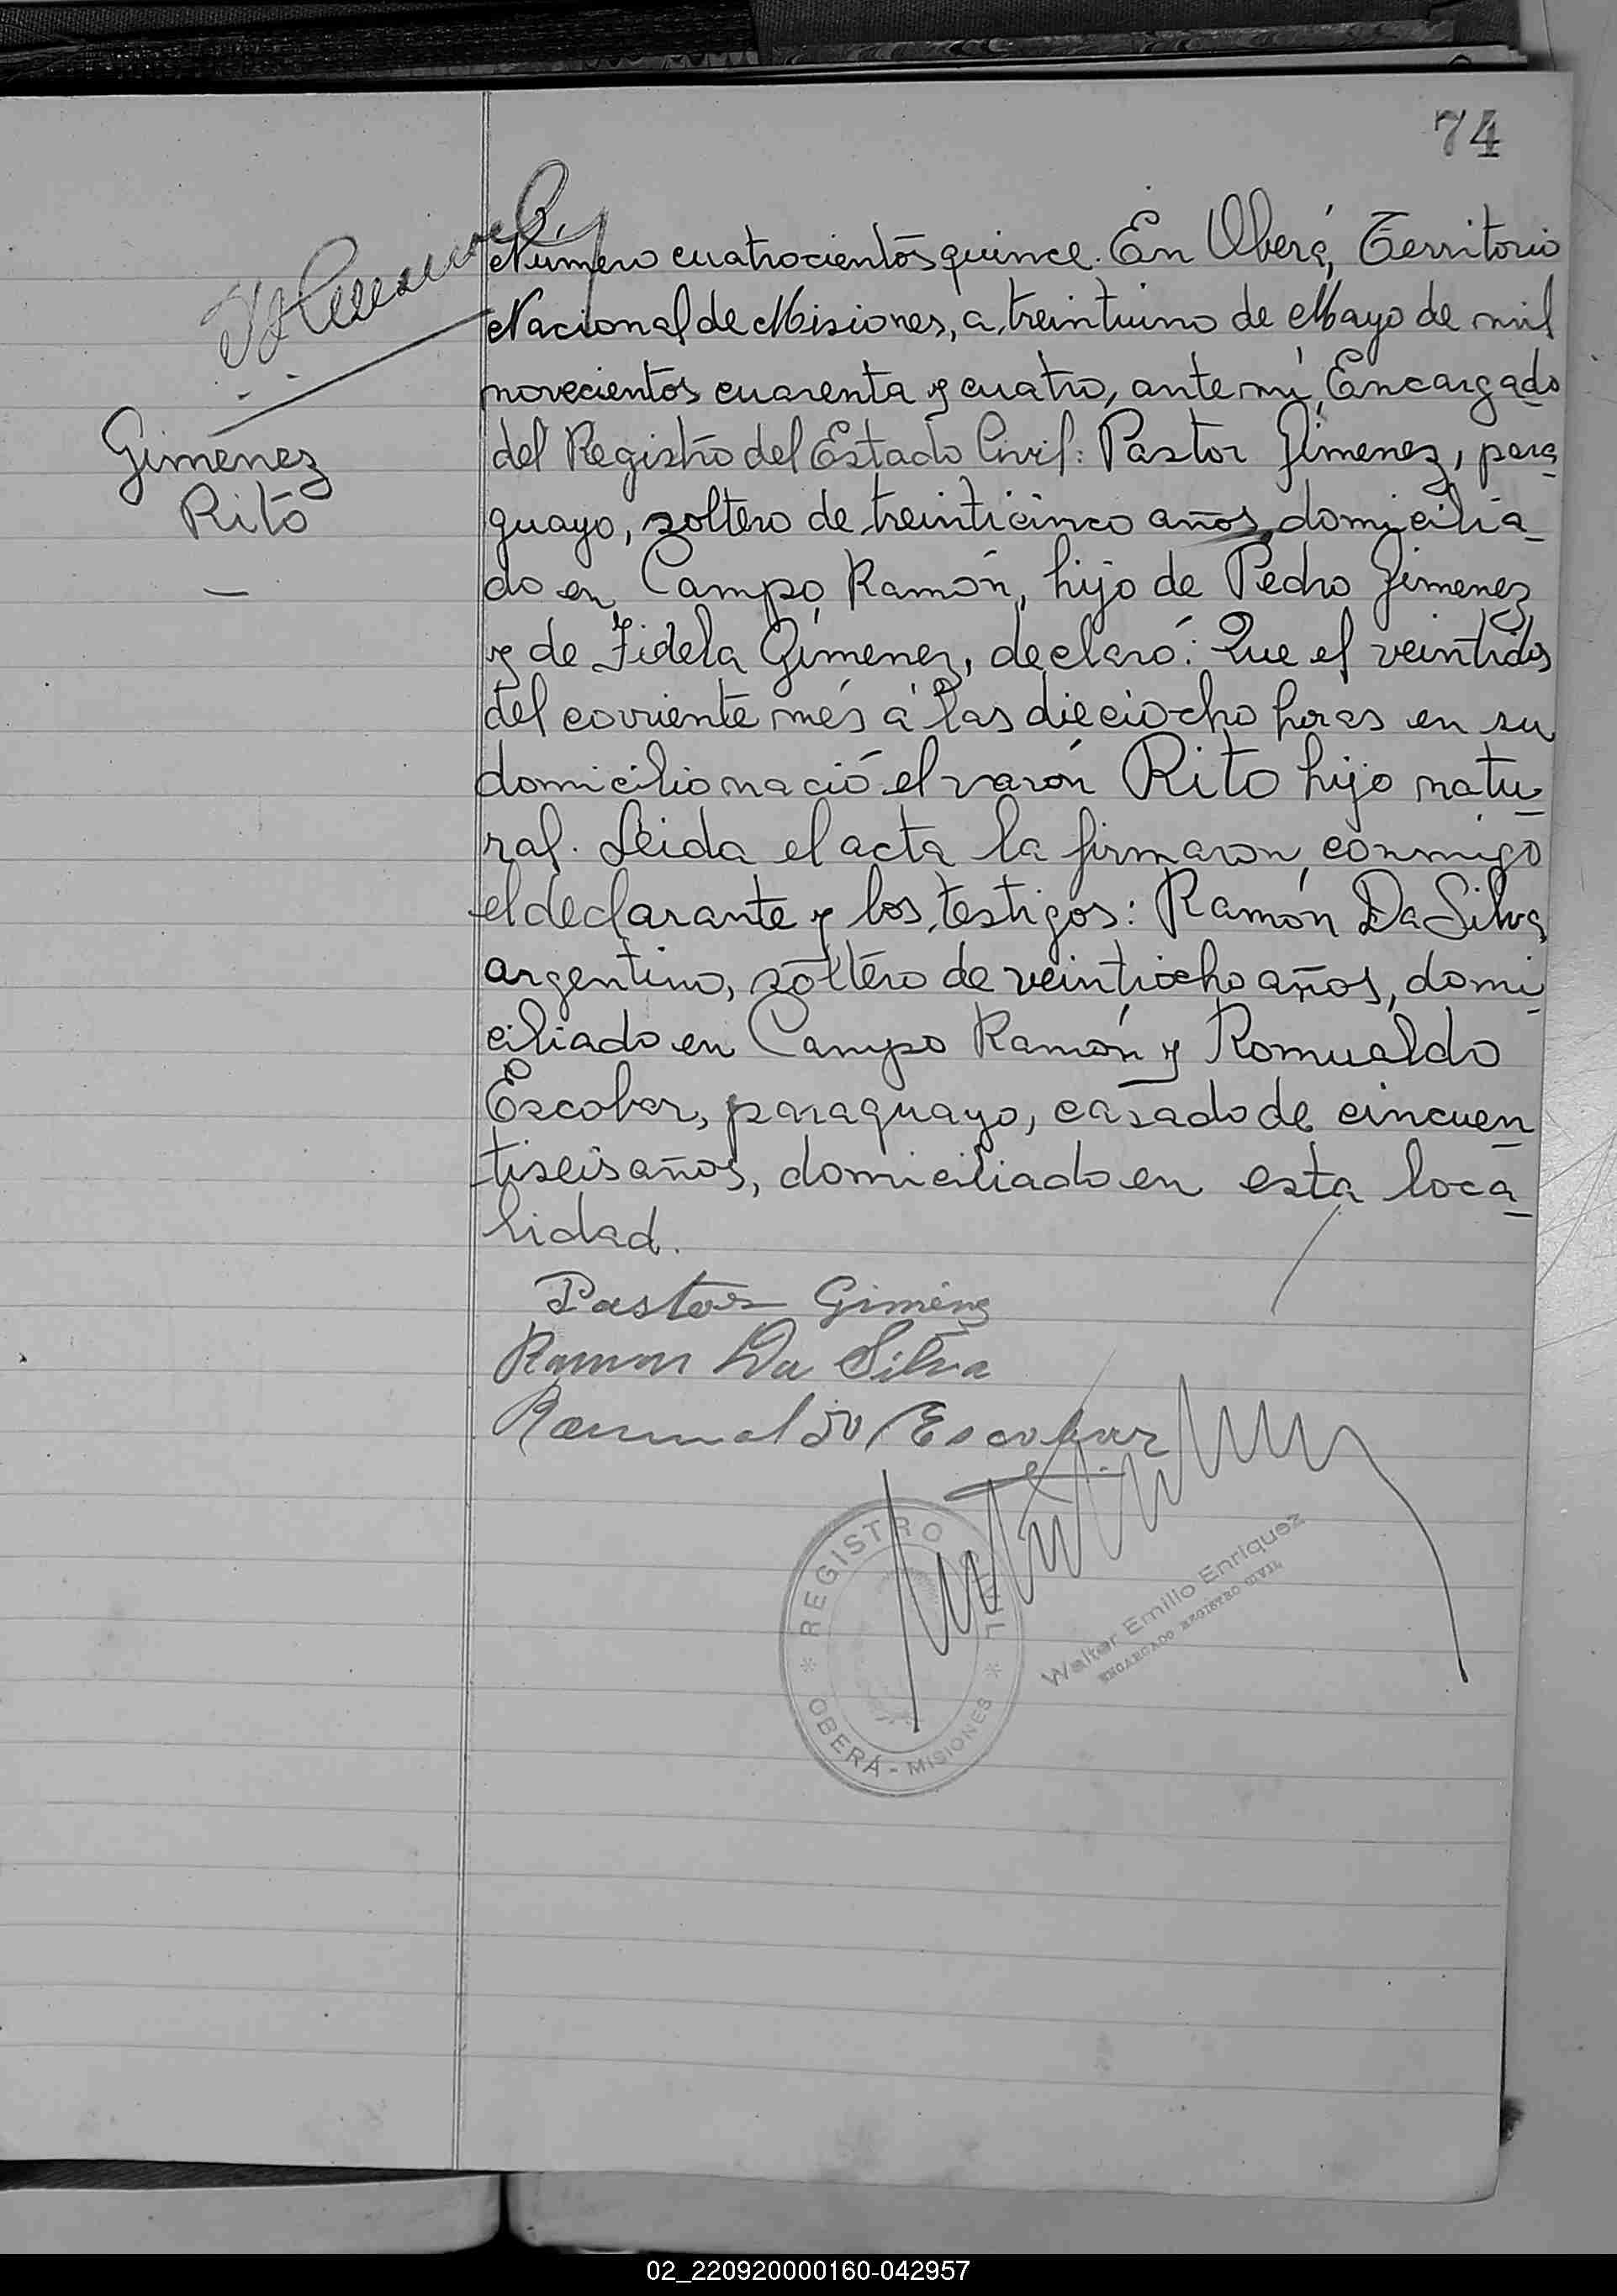 74
Número cuatrocientos quince. En Oberá, Territorio
Nacional de Misiones, a treintiuno de Mayo de mil
novecientos cuarenta y cuatro, ante mí, Encargado
del Registro del Estado Civil: Pastor Jimenez, para
guayo, soltero de treinticinco años, domicilia
do en Campo Ramón, hijo de Pedro Jimenez
y de Fidela Gimenez, declaró: Que el veintidós
del corriente més a las dieciocho horas en su
domicilio nació el varón Rito hijo natu
ral. Leida el acta la firmaron conmigo
el declarante y los testigos: Ramón Da Silva
argentino, soltero de veintiocho años, domi
ciliado en Campo Ramón y Romualdo
Escobar, paraguayo, casado de cincuen
tiseis años, domiciliado en esta loca
lidad.
Gimenez
Rito
Pastor Giménez
Ramon Da Silva
Romualdo Escobar
REGISTRO CIVIL
OBERÁ - MISIONES
Walter Emilio Enriquez
ENCARGADO REGISTRO CIVIL
02_220920000160-042957